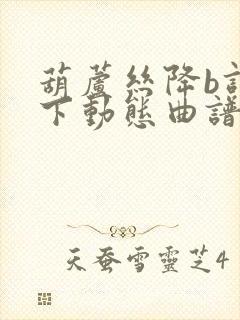 葫蘆絲降b
下動態曲譜
天蚕雪靈芝4